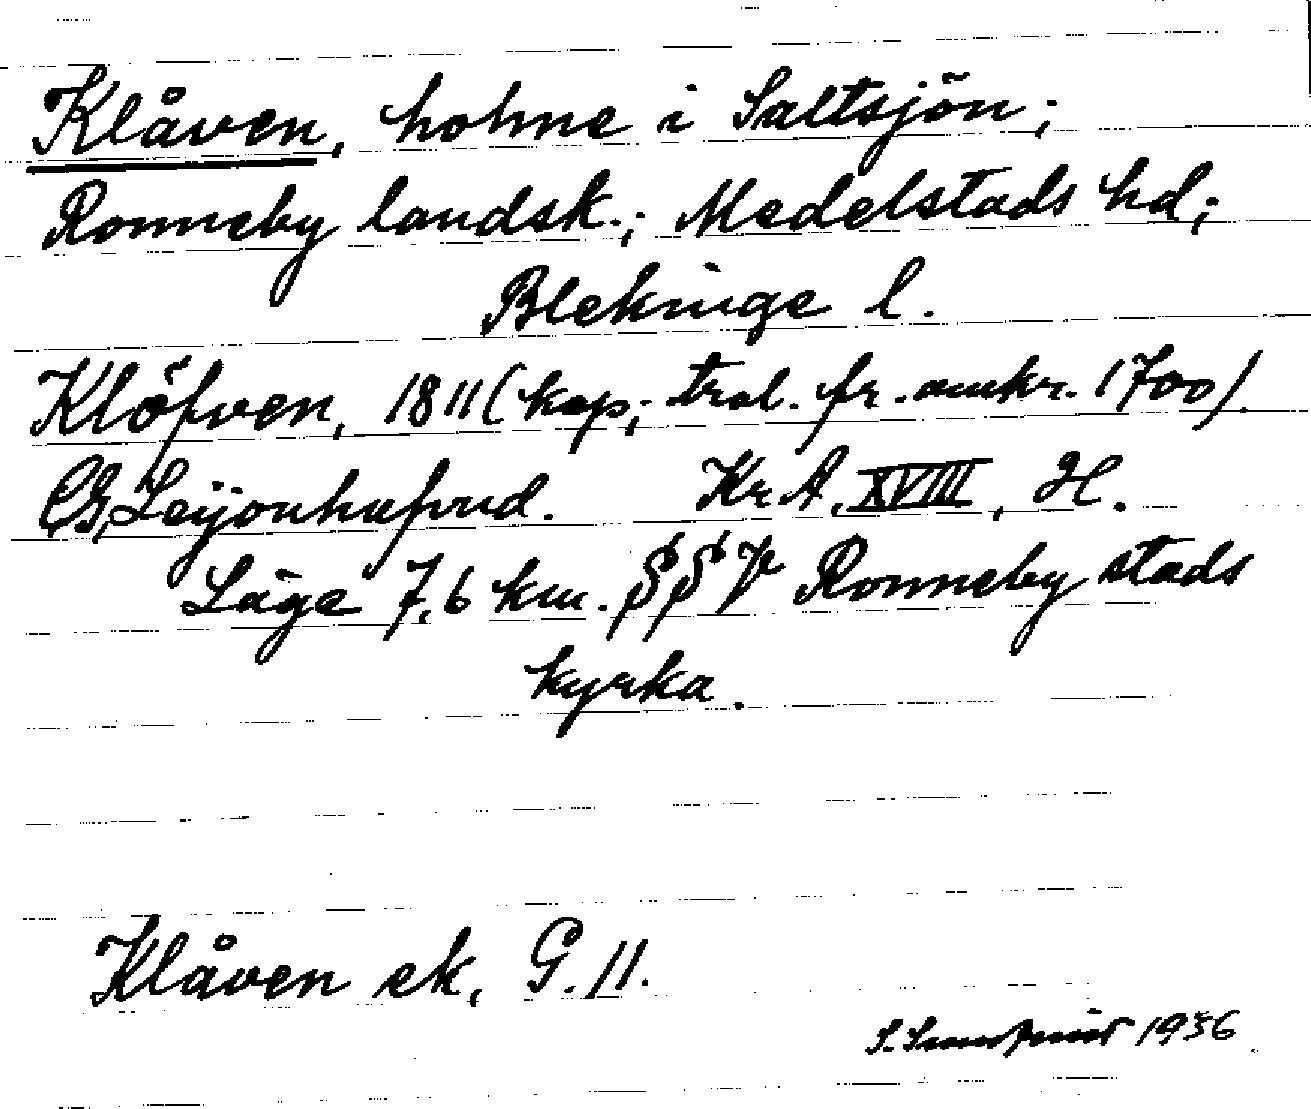 Klåven, holme i Saltsjön;
Ronneby landsk.; Medelstads hd;
Blekinge l.
Klöfven, 1811 (kop; trol. fr. omkr. 1700).
CG Leijonhufvud. KrA, XVIII, H.
Läge 7,6 km. Ronneby stads
kyrka.
Klåven ek, G. 11.
S. 1936